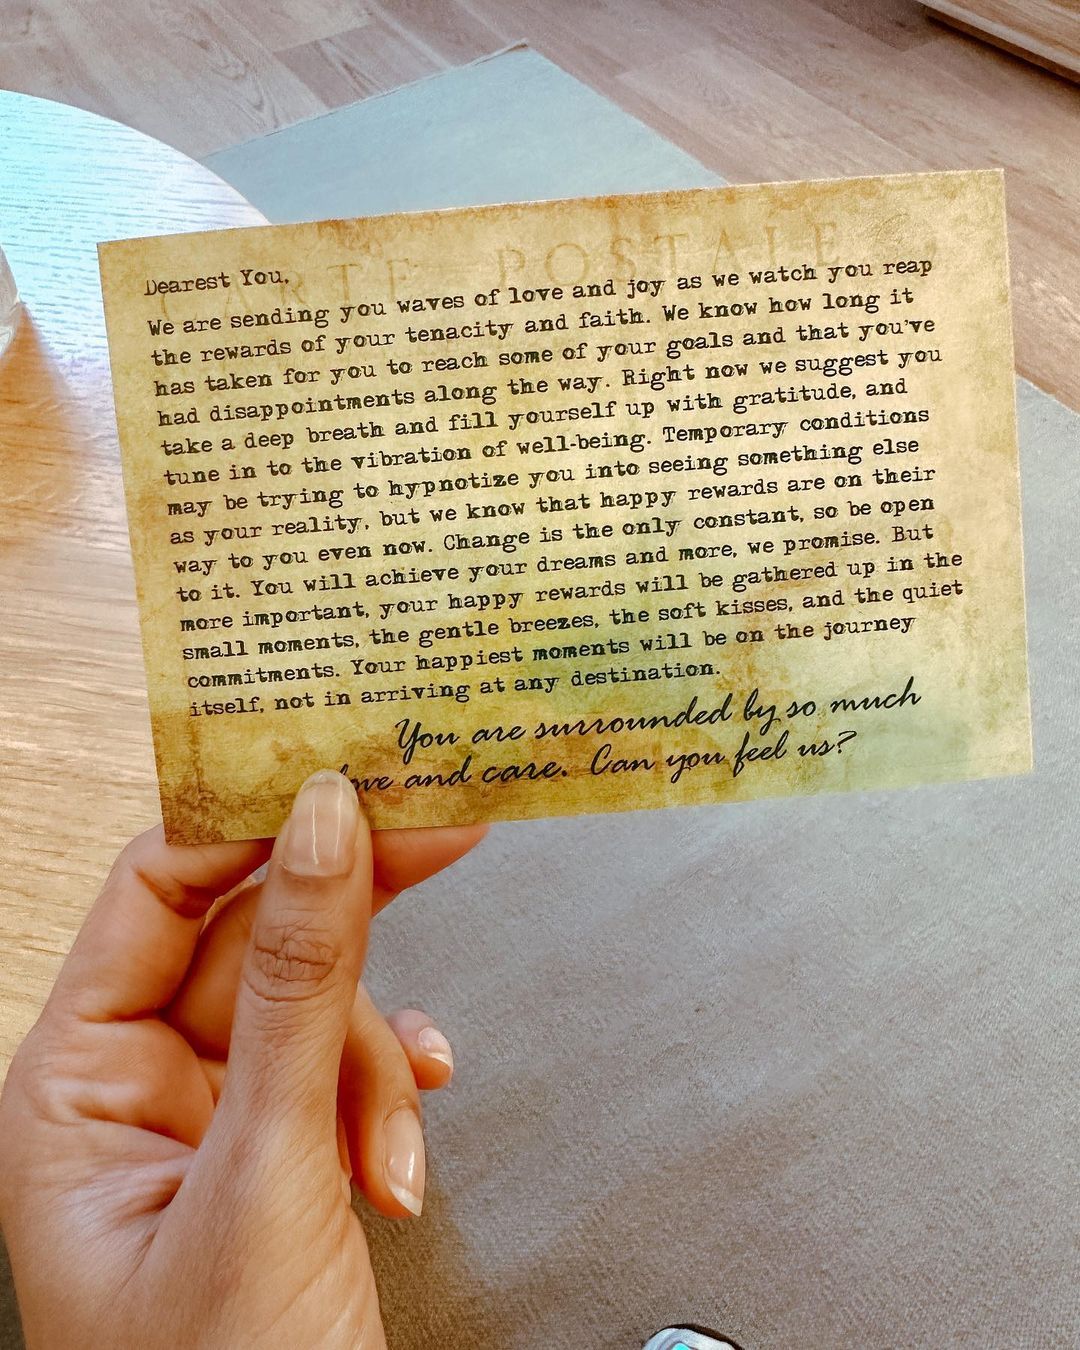 CARTE POSTALE
Dearest You,
We are sending you waves of love and joy as we watch you reap
the rewards of your tenacity and faith. We know how long it
has taken for you to reach some of your goals and that you've
had disappointments along the way. Right now we suggest you
take a deep breath and fill yourself up with gratitude, and
tune in to the vibration of well-being. Temporary conditions
may be trying to hypnotize you into seeing something else
as your reality, but we know that happy rewards are on their
way to you even now. Change is the only constant, so be open
to it. You will achieve your dreams and more, we promise. But
more important, your happy rewards will be gathered up in the
small moments, the gentle breezes, the soft kisses, and the quiet
commitments. Your happiest moments will be on the journey
itself, not in arriving at any destination.
You are surrounded by so much
love and care. Can you feel us?